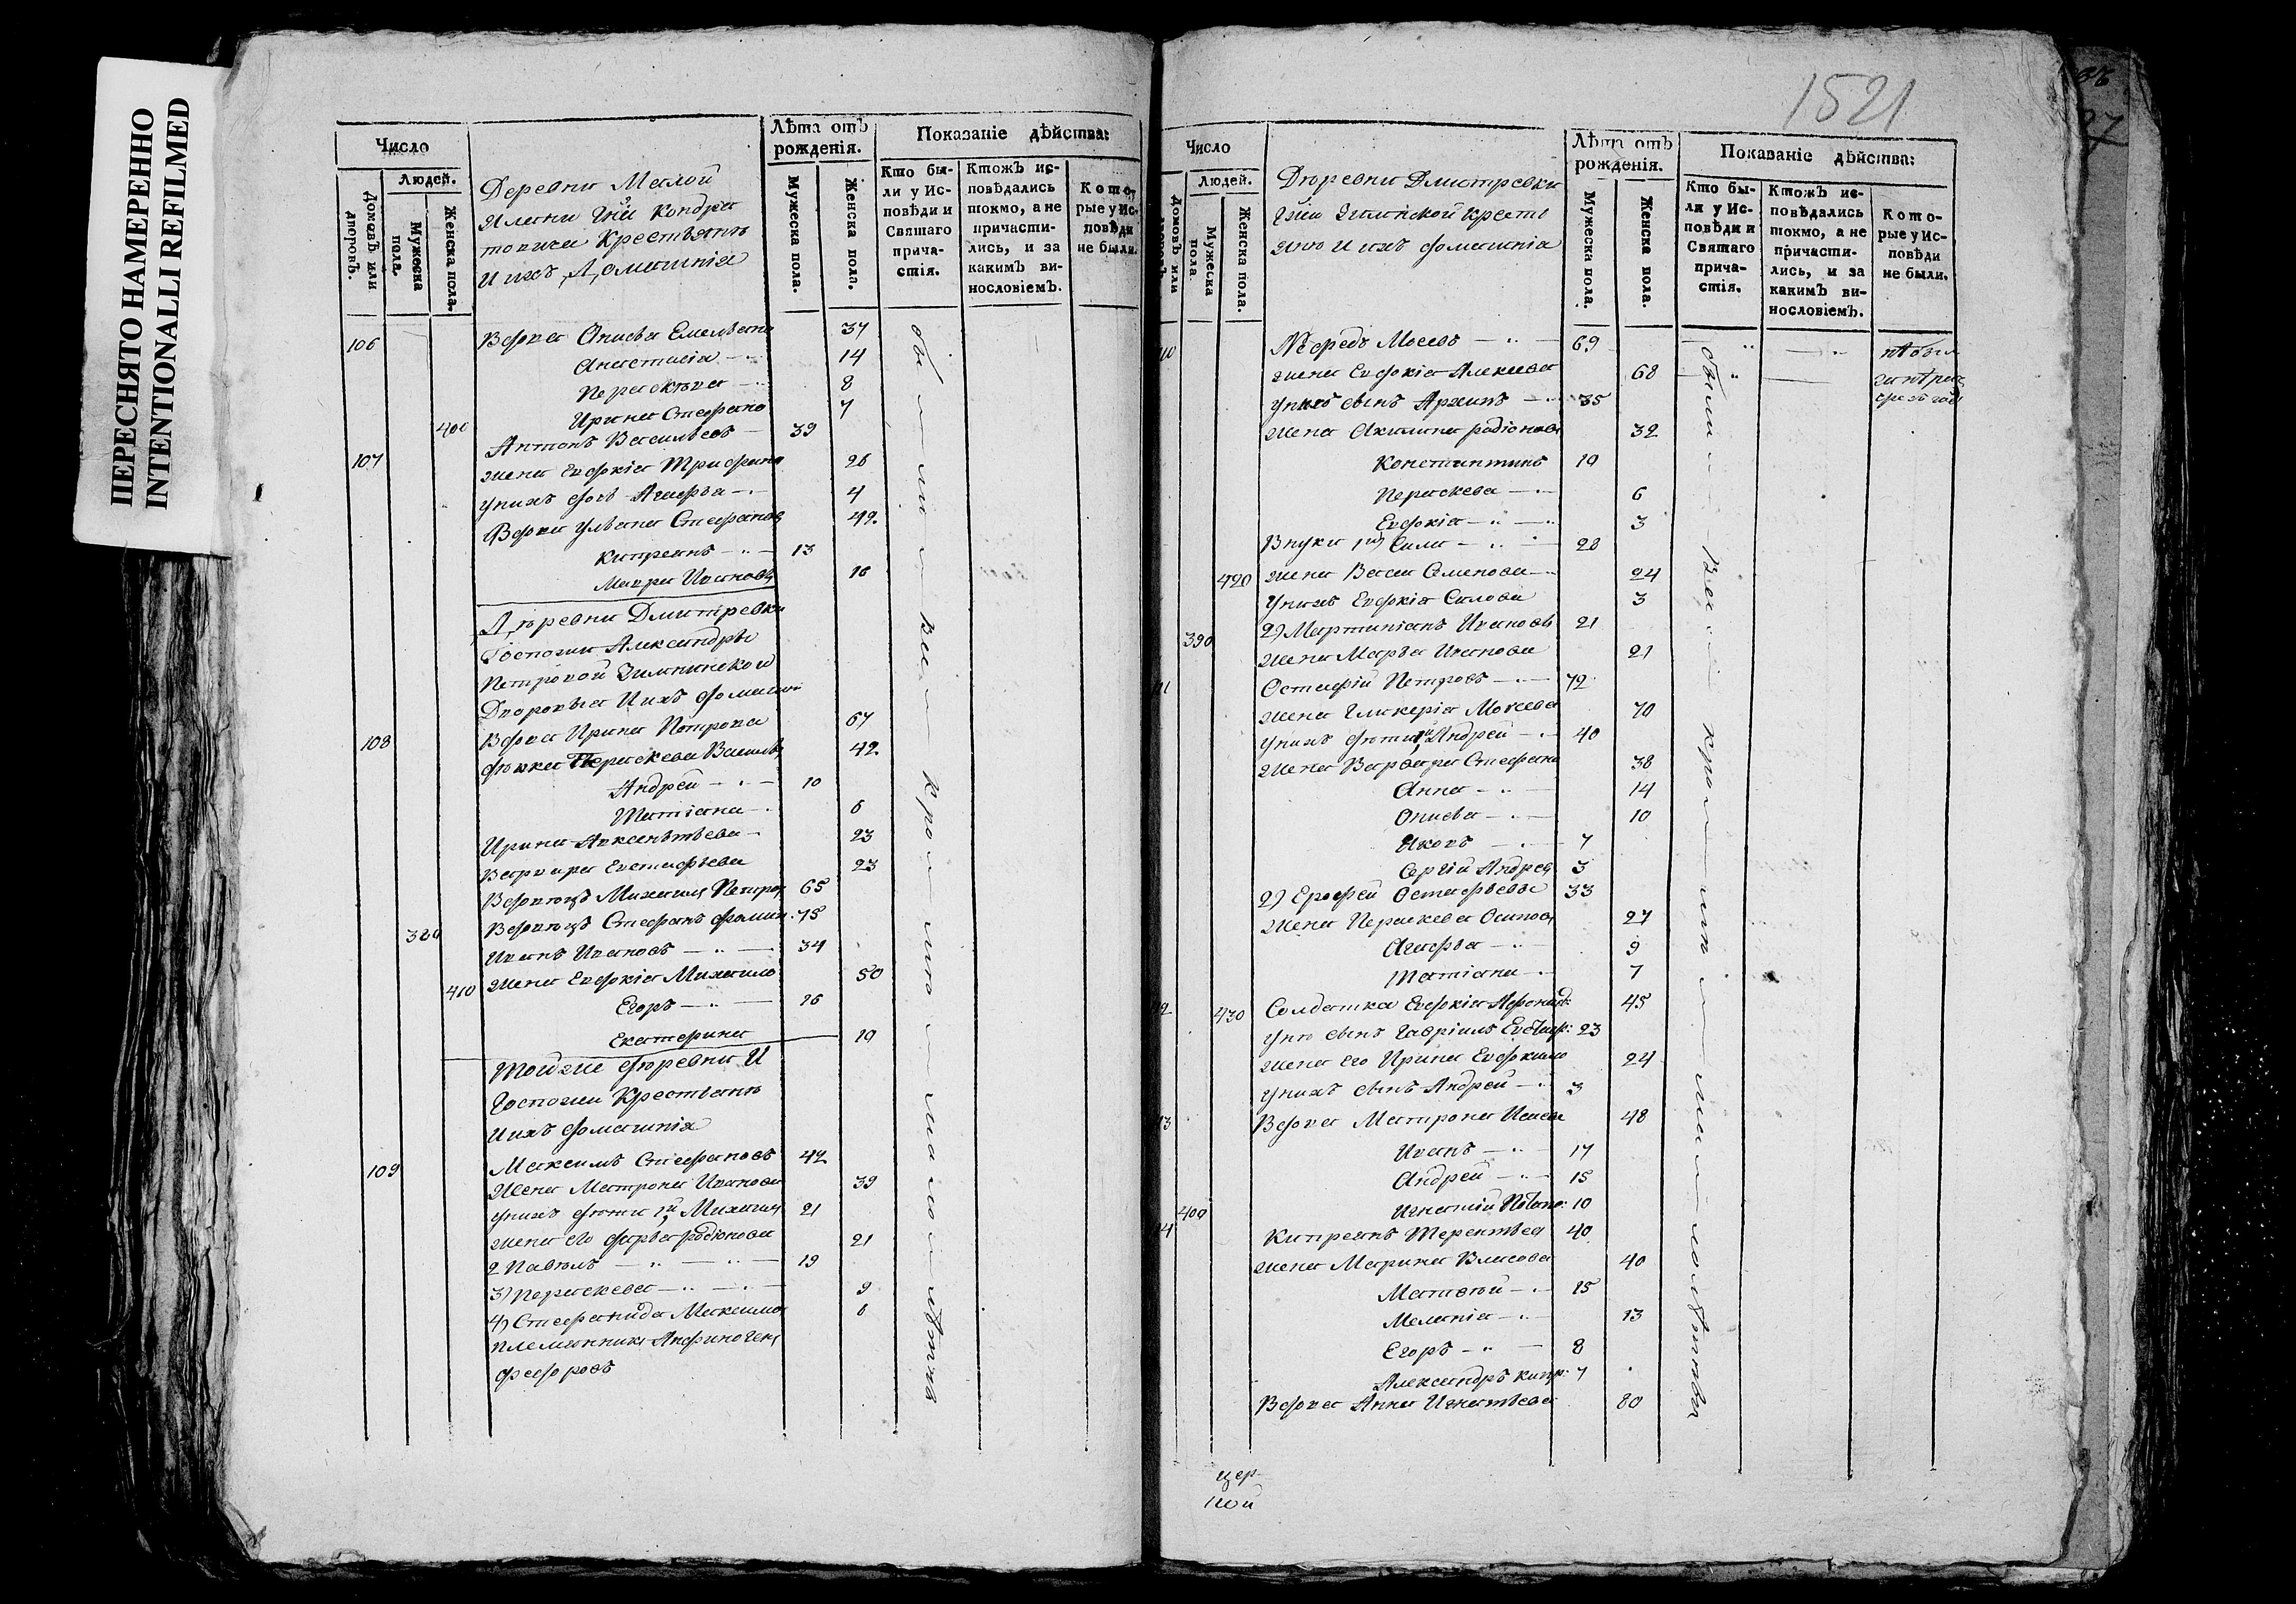 ПЕРЕСНЯТО НАМЕРЕННО
INTENTIONALLI REFILMED
Число
Людей.
Домовъ или дворовъ.
Мужеска пола.
Женска пола.
Деревни Малой
Кондра
товича Крестьяне
И ихъ Домашнія
Лѣта отъ рожденія.
Мужеска пола.
Женска пола.
Показаніе дѣйства:
Кто были у Исповѣди и Святаго причастія.
Ктожъ исповѣдались токмо, а не причастились, и за какимъ винословіемъ.
Которые у Исповѣди не были.
106 Вдова Анисья Емельяно 37
Анастасія 14
Параскева 8
400 Ирина Стефано 7
107 Антонъ Васильевъ 39
жена Евдокія Трифоно 26
у нихъ дочь Агафья 4
Вдова Ульяна Стефанова 42
Кипреянъ 13
Мавра Иванова 16
Деревни Дмитревки
Госпожи Александры
Петровой
Дворовыя И ихъ домашнія
108 Вдова Ирина Петрова 67
дѣвка Параскева Василье 42
Андрей 10
Татіана 6
Ирина Авксентьева 23
Варвара Евстафьева 23
Вдовецъ Михаилъ Петро 65
380 Вдовецъ Стефанъ Фомин 75
Иванъ Ивановъ 34
410 жена Евдокія Михаило 50
Егоръ 16
Екатерина 19
Тойже деревни И
Госпожи Крестьяне
И ихъ домашнія
109 Максимъ Стефановъ 42
Жена Матрона Иванова 39
у нихъ дѣти 1й Михаилъ 21
жена его Дарья Родіонова 21
2 Павелъ 19
3) Параскева 9
4) Стефанида Максимо 6
племянникъ Анфиноген
Федоровъ
были Вси Кромѣ малолѣтныхъ
1521
Число
Людей.
Домовъ или дворовъ.
Мужеска пола.
Женска пола.
Деревни Дмитревки
Гжи Кресть
яне И ихъ домашнія
Лѣта отъ рожденія.
Мужеска пола.
Женска пола.
Показаніе дѣйства:
Кто были у Исповѣди и Святаго причастія.
Ктожъ исповѣдались токмо, а не причастились, и за какимъ винословіемъ.
Которые у Исповѣди не были.
110 Мосеевъ 69
жена Евдокія Алексеева 68
у нихъ сынъ Архипъ 35
жена Акилина Родіонова 32
Константинъ 10
Параскева 6
Евдокія 3
Внуки 1й Сила 28
420 жена Васса Семенова 24
У нихъ Евдокія Силова 3
390 2) Мартиніанъ Ивановъ 21
жена Марья Иванова 21
111 Остафій Петровъ 72
жена Гликерія Мокеева 70
у нихъ дѣти 1й Андрей 40
жена Варвара Стефано 38
Анна 14
Анисья 10
Яковъ 7
Сергій Андрее 3
2) Ерофей Остафьевъ 33
жена Параскева Осипова 27
Агафья 9
Татіана 7
112 430 Солдатка Евдокія 45
у нее сынъ Гавріилъ Евстаф: 23
жена его Ирина Евдокимо 24
у нихъ сынъ Андрей 3
113 Вдова Матрона Исаева 48
Иванъ 17
Андрей 15
400 Игнатій 10
114 Кипреянъ Терентьев 40
жена Марина Власова 40
Матвей 15
Меланія 13
Егоръ 8
Александръ Кипр: 7
Вдова Анна Игнатьева 80
были Вси кромѣ малолѣтныхъ